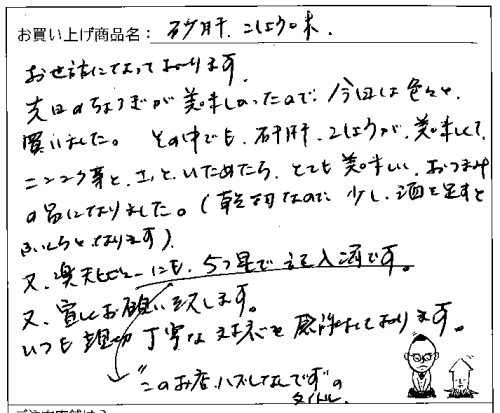 お買い上げ商品名：砂肝.こしょう味.
お世話になっております.
先日のちょうぎが美味しかったので.今回は色々と.
買いました。その中でも.砂肝.こしょうが.美味しくて.
ニンニク芽と.さっといためたら.とても美味しい.おつまみ
の品になりました。(乾物なので.少し.酒を足すと
ふっくらとなります).
又.楽天レビューにも.5つ星で記入済です。
又.宜しくお願い致します。
いつも親切丁寧な対応を感謝しております。
"このお店.ハズレなしです"の
タイトル.